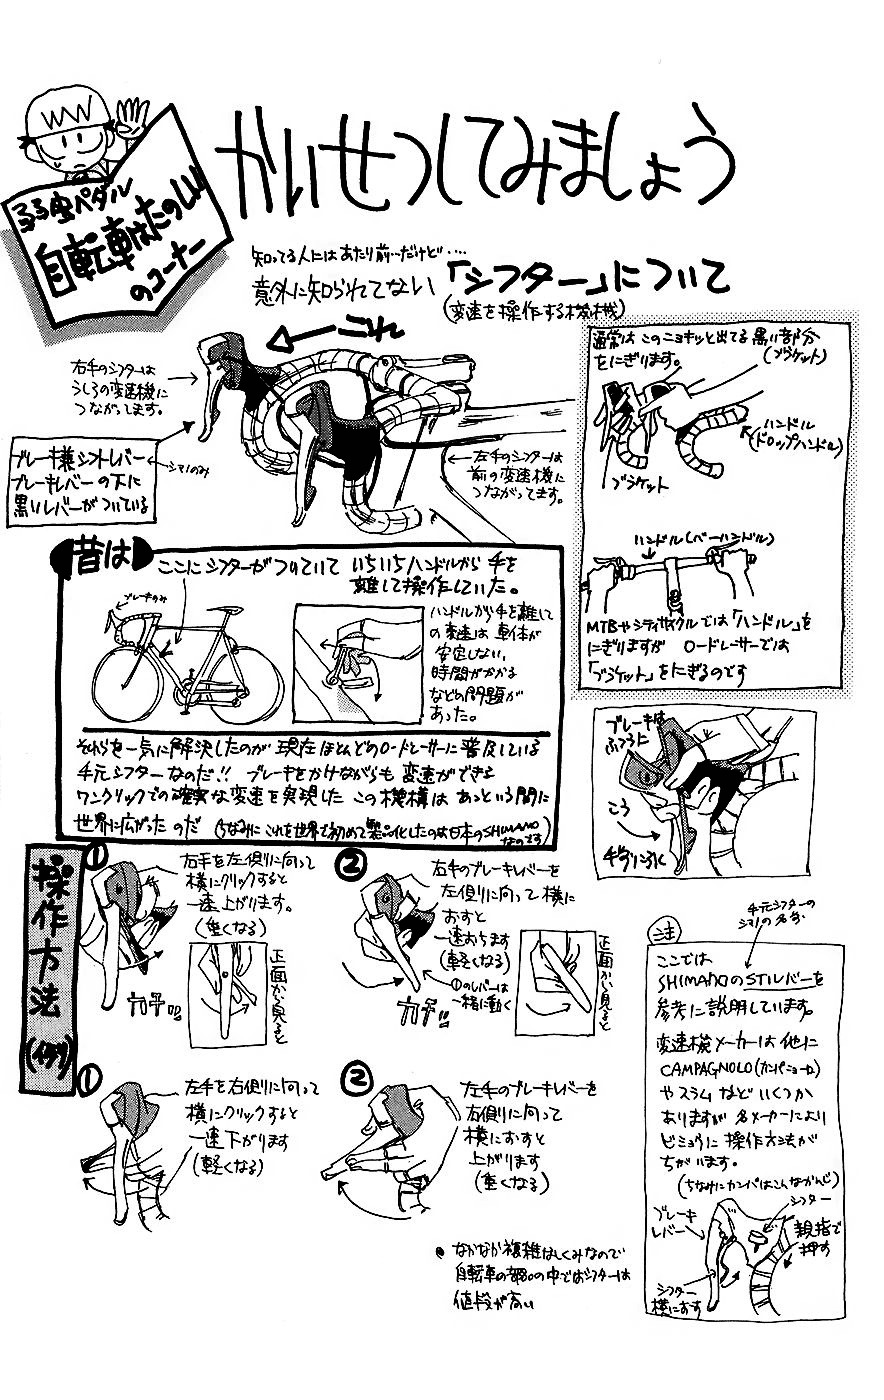 かいせつしてみましょう
弱虫ペダル
自転車はたのしい
のコーナー
知ってる人にはあたり前…だけど・・・・
意外に知られてない「シフター」について
(変速を操作する機械)
これ
右手のシフターは
うしろの変速機に
つながってます。
ブレーキ兼シフトレバー
ブレーキレバーの下に
黒いレバーがついている
シマノのみ
左手のシフターは
前の変速機に
つながってます。
通常はこのニョキッと出てる黒い部分
(ブラケット)
をにぎります。
ハンドル
(ドロップハンドル)
ブラケット
ハンドル(バーハンドル)
MTBやシティサイクルでは「ハンドル」を
にぎりますが ロードレーサーでは
「ブラケット」をにぎるのです
昔は
ここにシフターがついていて いちいちハンドルから手を
離して操作していた。
ブレーキのみ
ハンドルから手を離して
の変速は車体が
安定しない,
時間がかかる
などの問題が
あった。
それらを一気に解決したのが 現在ほとんどのロードレーサーに普及している
手元シフターなのだ!! ブレーキをかけながらも変速ができる
ワンクリックでの確実な変速を実現した この機構は あっという間に
世界に広がったのだ (ちなみにこれを世界で初めて製品化したのは日本のSHIMANO
なのです)
ブレーキは
ふつうに
こう
手前にひく
操作方法
①
右手を左側に向って
横にクリックすると
一速上がります。
(重くなる)
カチッ!!
正面から見ると
②
右手のブレーキレバーを
左側に向って横に
おすと
一速おちます
(軽くなる)
①のレバーは
一緒に動く
カチッ
正面から見ると
①
左手を右側に向って
横にクリックすると
一速下がります
(軽くなる)
②
左手のブレーキレバーを
右側に向って
横におすと
上がります
(重くなる)
●なかなか複雑なしくみなので
自転車の部品の中ではシフターは
値段が高い
手元シフターの
シマノの名称
注
ここでは
SHIMANOのSTIレバーを
参考に説明しています。
変速機メーカーは他に
CAMPAGNOLO(カンパニョーロ)
やスラムなどいくつか
ありますが各メーカーにより
ビミョウに操作方法が
ちがいます。
(ちなみにカンパはこんなかんじ)
ブレーキ
レバー
シフター
親指で
押す
シフター
横におす